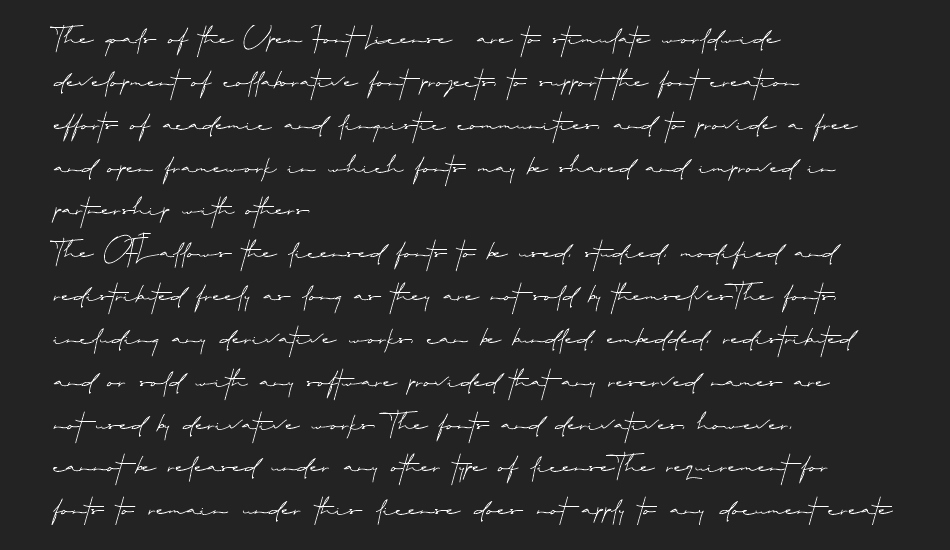 The goals of the Open Font License are to stimulate worldwide
development of collaborative font projects, to support the font creation
efforts of academic and linguistic communities, and to provide a free
and open framework in which fonts may be shared and improved in
partnership with others
The OFL allows the licensed fonts to be used, studied, modified and
redistributed freely as long as they are not sold by themselves The fonts,
including any derivative works, can be bundled, embedded, redistributed
and or sold with any software provided that any reserved names are
not used by derivative works The fonts and derivatives, however,
cannot be released under any other type of license The requirement for
fonts to remain under this license does not apply to any document create